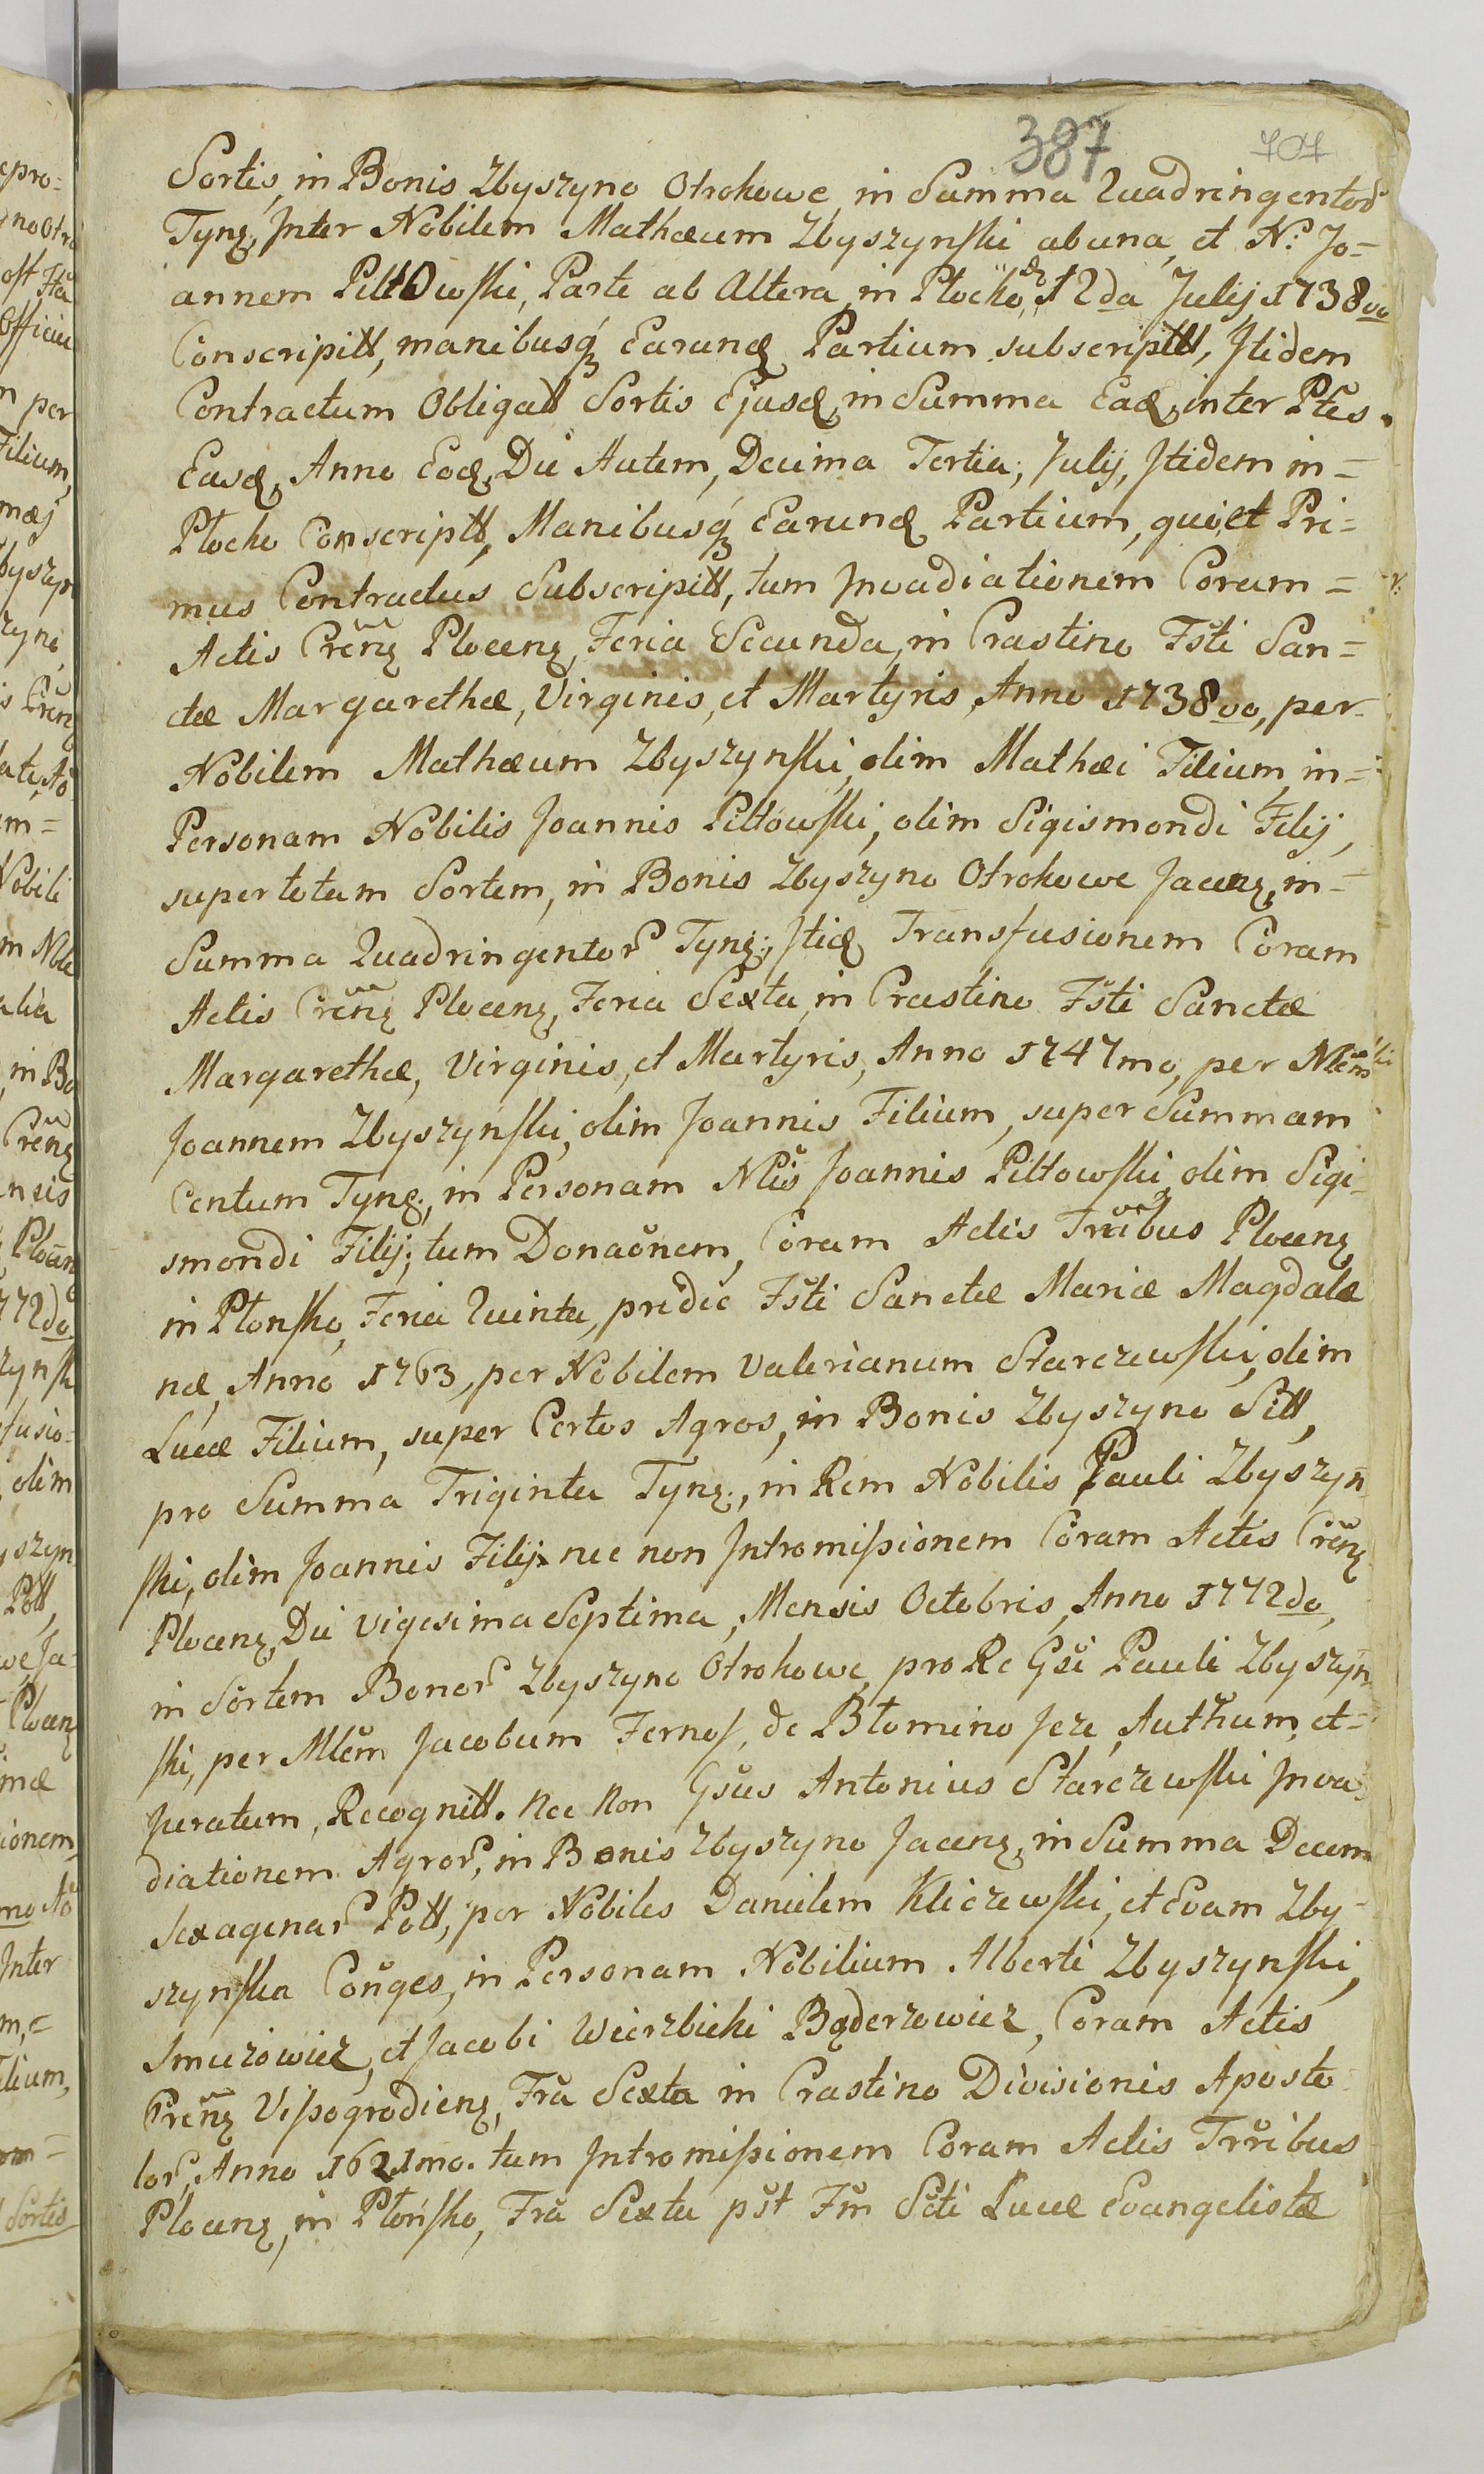 387 707
Sortis, in Bonis Zbyszyno Otrokowe in Summa Quadringentor
Tynz, Inter Nobilem Mathæum Zbyszynski ab una, et N. Jo=
annem Piltowski, Parte ab Altera in Płocko, 12da Julij 1738vo
Conscriptt, manibusq3 Earund Partium subscriptt, Itidem
Contractum Obligatt Sortis Ejusd, in Summa Ead, inter Ptes
Easd, Anno Eod, Die Autem, Decima Tertia, Julij, Itidem in=
Płocko Conscriptt, Manibusq3 Earund Partium, qui et Pri=
mus Contractus Subscriptt, tum Invadiationem Coram=
Actis Crenz Plocenz, Feria Secunda, in Crastino Fsti San=
ctæ Margarethæ, Virginis, et Martyris, Anno 1738vo, per
Nobilem Mathæum Zbyszynski, olim Mathæi Filium, in=
Personam Nobilis Joannis Piltowski, olim Sigismondi Filij,
super totam Sortem, in Bonis Zbyszyno Otrokowe Jacenz, in=
Summa Quadringentor Tynz; Itid Transfusionem Coram
Actis Crenz Plocenz, Feria Sexta, in Crastino Fsti Sanctæ
Margarethæ, Virginis, et Martyris, Anno 1747mo, per Nlem
Joannem Zbyszynski, olim Joannis Filium, super Summam
Centum Tynz, in Personam Nlis Joannis Piltowski olim Sigi=
smondi Filij; tum Donaonem, Coram Actis Trribus Plocenz,
in Płonsko, Feria Quinta, pridie Fsti Sanctæ Mariæ Magdale
næ, Anno 1763, per Nobilem Valerianum Starczewski, olim
Lucæ Filium, super Certos Agros, in Bonis Zbyszyno Sitt,
pro Summa Triginta Tynz., in Rem Nobilis Pauli Zbyszyn
ski, olim Joannis Filij nec non Intromissionem Coram Actis Crenz
Plocenz, Die vigesima Septima, Mensis Octobris, Anno 1772do,
in Sortem Bonor Zbyszyno Otrokowe, pro Re Gsi Pauli Zbyszyn
ski, per Mlem Jacobum Fernos, de Błomino Jeze, Authum, et=
Juratum, Recognitt. Nec Non Gsus Antonius Starczewski Inva
diationem Agror, in Bonis Zbyszyno Jacenz, in Summa Decem
Sexagenar Poll, per Nobiles Danielem Kliczewski, et Evam Zby=
szynska Conges, in Personam Nobilium Alberti Zbyszynski,
Smurowicz, et Jacobi Wierzbicki Bąderzowicz, Coram Actis
Crenz Vissogrodienz, Fra Sexta in Crastino Divisionis Aposto
lor, Anno 1621mo. tum Intromissionem Coram Actis Trribus
Plocenz, in Płońsko, Fra Sexta pst Fm Scti Lucæ Evangelistæ